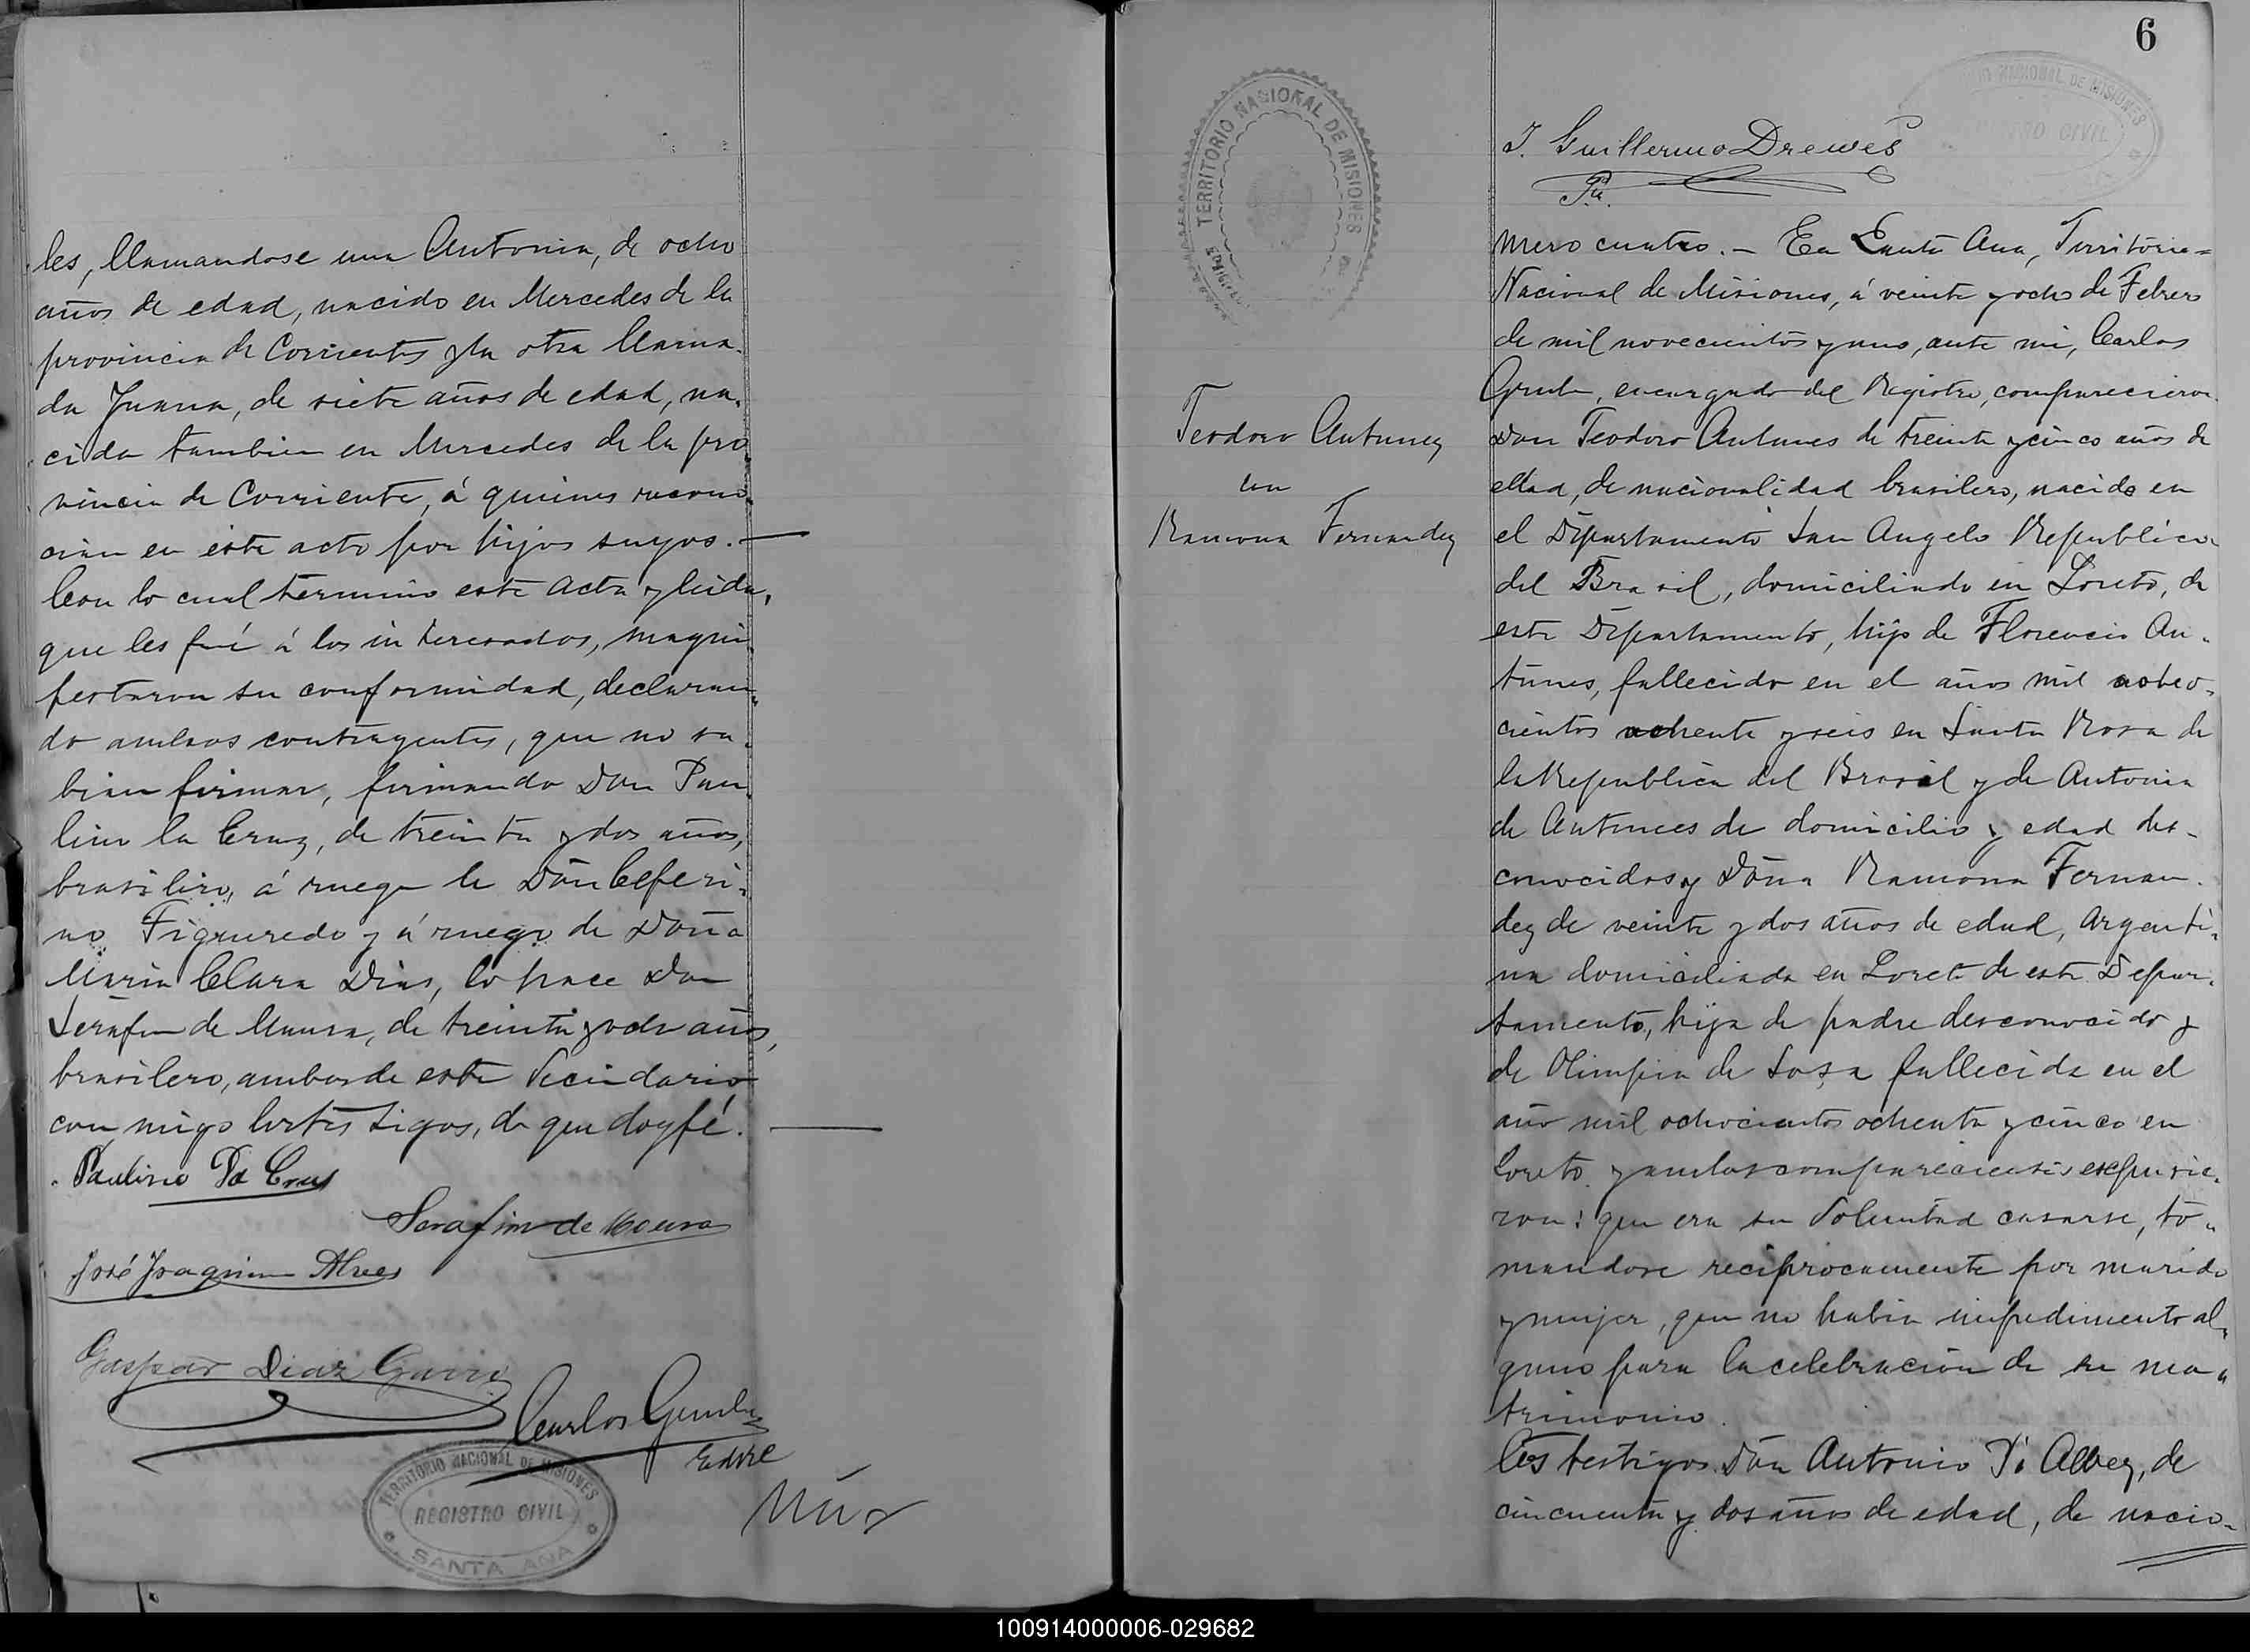 les, llamandose una Antonia, de ocho
años de edad, nacido en Mercedes de la
provincia de Corrientes y la otra llama-
da Juana, de siete años de edad, na-
cida tambien en Mercedes de la pro-
vincia de Corriente, á quienes recono-
cian en este acto por hijos suyos.—
Con lo cual termino este acta y leida,
que les fué á los interesados, magni-
festaron su conformidad, declaran-
do ambos contrayentes, que no sa-
bian firmar, firmando Don Pau-
lino la Cruz, de treinta y dos años,
brasilero, á ruego de Don Ceferi-
no Figueredo y á ruego de Doña
Maria Clara Dias, lo hace Don
Serafin de Maura, de treinta y ocho años,
brasilero, ambos de este Vecindario
con migo los testigos, de que doy fé.—
Paulino Da Cruz
Serafim de Moura
José Joaquim Alves
Gaspar Diaz
Carlos
TERRITORIO NACIONAL DE MISIONES
REGISTRO CIVIL
SANTA ANA
Nú
6
TERRITORIO NACIONAL DE MISIONES
NACIONAL DE MISIONES
CIVIL
J. Guillermo Drewes
mero cuatro.— En Santa Ana, Territorio
Nacional de Misiones, á veinte y ocho de Febrero
de mil novecientos y uno, ante mi, Carlos
encargado del Registro, comparecieron
Don Teodoro Antunes de treinta y cinco años de
edad, de nacionalidad brasilero, nacido en
el Departamento San Angelo Republica
del Brasil, domiciliado en Loreto, de
este Departamento, hijo de Florencio An-
tunes, fallecido en el años mil ochio-
cientos ochente y seis en Santa Rosa de
la Republica del Brasil y de Antonia
de Antunes de domicilio y edad des-
conocidos y Doña Ramona Fernan-
dez de veinte y dos años de edad, argenti-
na domiciliada en Loreto de este Depar-
tamento, hija de padre desconocido y
de Olimpia de Sosa fallecida en el
año mil ochocientos ochenta y cinco en
Loreto y ambos comparecientes expusie-
ron: que era su Voluntad casarse, to-
mandose reciprocamente por marido
y mujer, que no habia impedimento al-
guno para la celebracion de su ma-
trimonio.
Los testigos Don Antonio Alvez, de
cincuenta y dos años de edad, de nacio-
Teodoro Antunez
con
Ramona Fernandez
100914000006-029682